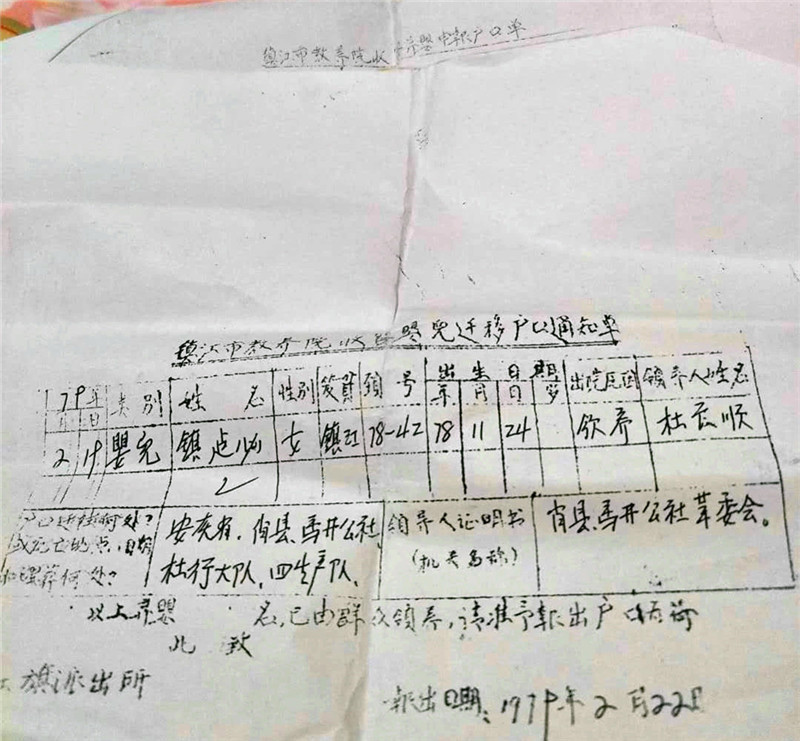 镇江市教养院收 弃婴申报户口单
镇江市教养院收 婴儿迁移户口通知单
79年 类别 姓 名 性别 籍貫 编号 出生日期 出院原因 领养人姓名
月 日 年 月 日
2 14 婴儿 镇 女 镇江 78-42 78 11 24 领养 杜 顺
户口迁往何处? 安灰省.肖县.马井公社 领养人证明书 肖县.马井公社革委会。
或死亡地点,
和埋葬何处? 杜行大队.四生产队. (机关名称)
以上弃婴 名,已由群众领养,请准予報出户口
此 致
旗派出所
報出日期:1979年2月22日